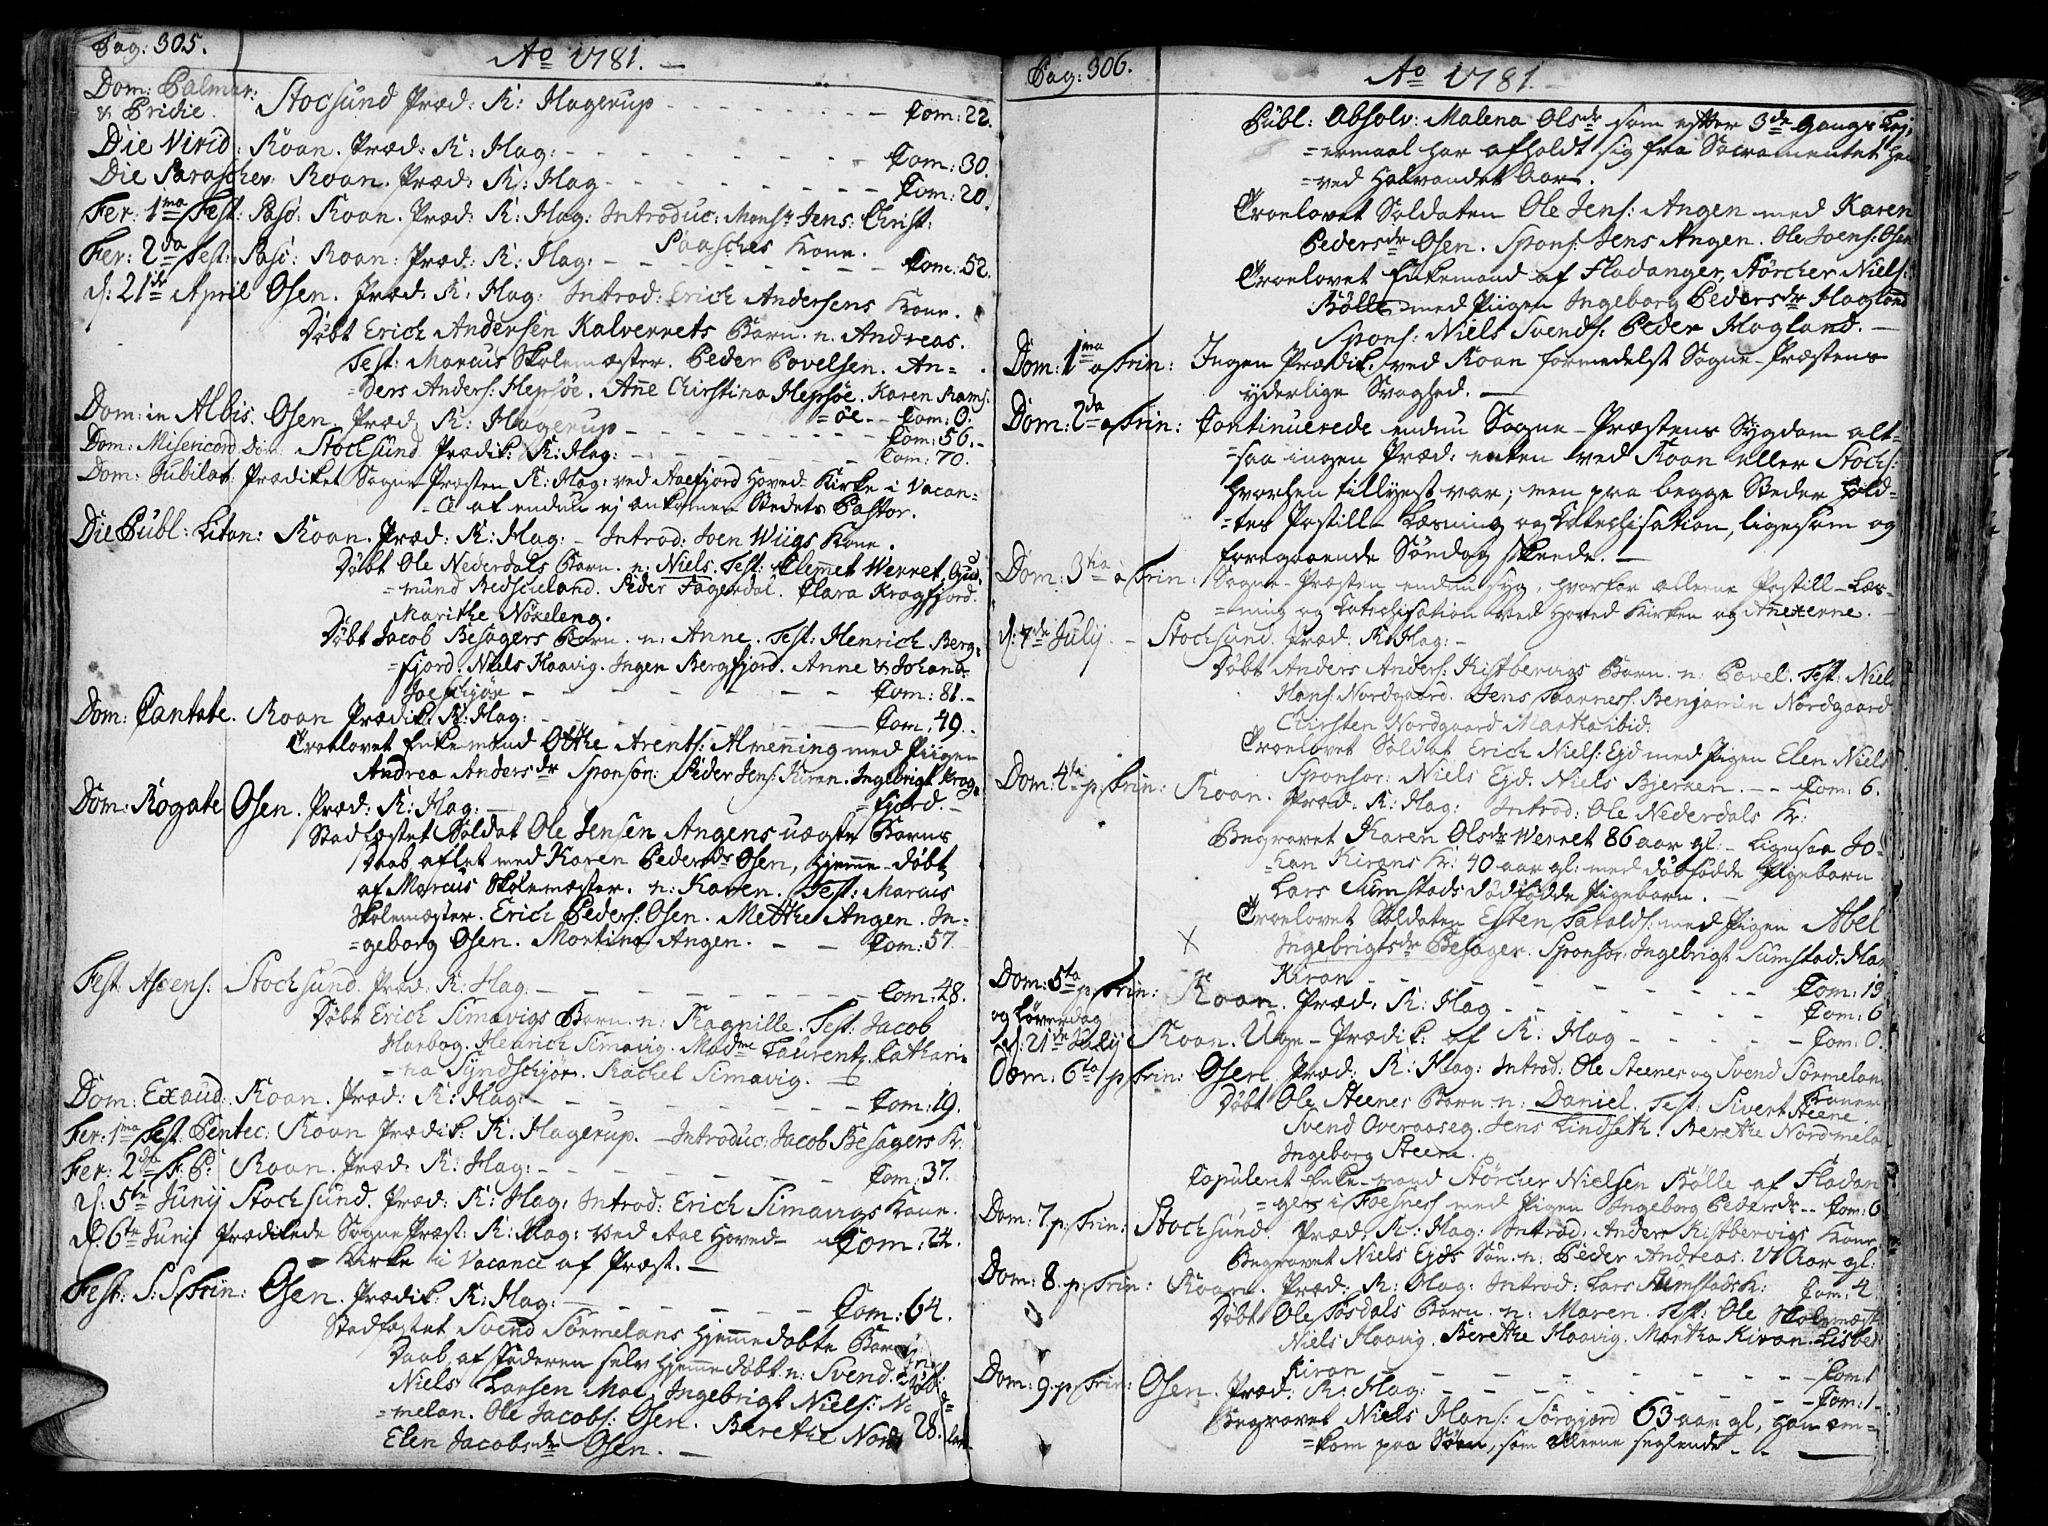 Pag: 305.
Ao 1781.
Dom: Palmar:
& Pridie. Stocsund Præd: K: Hagerup - - - Com: 22.
Die Virid: Roan. Præd: K: Hag: - - - Com: 30.
Die Parascher: Roan. Præd: K: Hag - - - Com: 20.
Fer: 1ma Fest: Pasc: Roan. Præd: K: Hag: Introduc: Monsr Jens: Christ:
Paasches Kone.
Fer: 2da Fest: Pasc: Roan: Præd: K: Hag: - - - Com: 52.
d: 21de April Osen. Præd: K: Hag: Introd: Erich Andersens Kone.
Døbt Erich Andersen Kalvernets Barn. n. Andreas.
Test: Marcus Skolemæster. Peder Povelsen. An=
=ders Anders: Hepsøe. Ane Christina Hepsøe. Karen Rams:
=øe. Com: 0.
Dom: in Albis. Osen. Præd: K: Hagerup - - - Com: 56.
Dom: Misericord Dom: Stocksund Prædik: K: Hag: - - - Com: 70.
Dom: Jubilat: Prædiket Sogne-Præsten K: Hag: ved Aaefjord Hoved-Kirke i Vacan=
=ce af endnu ej ankomen Stedets Pastor.
Die Publ: Litan: Roan. Præd: K: Hag: - Introd: Joen Wiigs Kone.
Døbt Ole Nederdals Barn. n: Niels. Test: Clemet Werret, Gud=
=mund Bedscheland. Peder Fagerdal. Clara Kragfjord.
Marithe Nøxeleng.
Døbt Jacob Besagers Barn. n: Anne. Test: Henrich Berg=
=fjord. Niels Haavig. Ingen Bergfjord. Anne & Johana
Joeschjør - - - Com: 81.
Dom: Cantate. Roan Prædik: K: Hag: - - - Com: 49.
Troelovet Enkemand Otthe Arents: Almenning med Piigen
Andrea Andersdr Sponsor: Peder Jens: Kiran. Ingebrigt Krag=
=fjord.
Dom: Rogate Osen. Præd: K: Hag: -
Stadfæstet Soldat Ole Jensen Angens uægte Barns
Daab aflet med Karen Pedersdr Osen, hjemme-døbt
af Marcus Skolemæster. n: Karen. Test: Marcus
Skolemæster. Erich Peders: Osen. Metthe Angen. In=
=geborg Osen. Martina Angen. - - Com: 57.
Fest: Ascens: Stochsund. Præd: K: Hag: - - - Com: 48.
Døbt Erich Simavigs Barn. n: Ragnille. Test: Jacob
Harbog. Henrich Simavig. Madme Laurentz. Cathari=
=na Syndschjør. Rachel Simavig.
Dom: Exaud: Roan. Præd: K: Hag: - - - Com: 19.
Fer: 1ma Fest: Pentec: Roan Prædik: K: Hagerup. - Introduc: Jacob Besagers K:
Fer: 2da F: P: Roan. Præd: K: Hag: - - - Com: 37.
d: 5te Junij Stochsund. Præd: K: Hag: Introd: Erich Simavigs Kone.
d: 6te Junij Prædikede SognePræst: K: Hag: ved Aae Hoved- Com: 24.
- Kirke i Vacance af Præst. -
Fest: S: S: Trin: Osen. Prædik: K: Hag: - - - Com: 64.
Stadfæstet Svend Sørmelans hjemmedøbte Barns
Daab, af Faderen selv hjemmedøbt. n: Svend. Test:
Niels Larsen Mae. Ingebrigt Niels:
=melan. Ole Jacobs: Osen. Berethe Nord 28.
Elen Jacobsdr Osen. -
Pag: 306.
Ao 1781.
Publ: Absolv: Malena Olsdr som efter 3de Gangs Lej=
=ermaal har afholdt sig fra Sacramentet hen
=ved halvandet Aar.
Troelovet Soldaten Ole Jens: Angen med Karen
Pedersdr Osen. Spons: Jens Angen. Ole Joens: Osen
Troelovet Enkemand af Fladanger, Størcher Niels:
Bølle med Piigen Ingeborg Pedersdr Hagland
Spons: Niels Svends: Peder Hagland. -
Dom: 1ma a Trin: Ingen Prædik. ved Roan formedelst Sogne-Præstens
yderlige Svaghed. -
Dom: 2da a Trin: Continuerede endnu Sogne-Præstens Sygdom alt=
=saa ingen Præd: enten ved Roan eller Stochs:
hvorhen tillyest var; men paa begge Steder hold=
=tes Postill-Læsning og Catechisation, ligesom og
foregaaende Søndag skeede. -
Dom: 3tia a Trin: Sogne-Præsten endnu syg, hvorfor allene Postill-Læs=
=ning og Catechisation ved Hoved Kirken og Anexerne.
d: 7de July - Stochsund. Præd: K: Hag: -
Døbt Anders Anders: Kistbervigs Barn. n: Povel. Test: Niels
Hans: Nordgaard. Jens Hanness: Benjamin Nordgaard
Chirsten Nordgaard Martha ibid:
Troelovet Soldat Erich Niels: Ejd med Pigen Elen Niels
Sponsor: Niels Ejd. Niels Bjerken. - - Com: 6.
Dom: 4ta p. Trin: Roan. Præd: K: Hag: Introd: Ole Nederdals K:
Begravet Karen Olsdr Werret 86 aar gl: - Ligesaa Jo=
=han Kirans K: 40 aar gl: med dødfødde Pigebarn
Lars Sumstads dødfødde Pigebarn. -
Troelovet Soldaten Esten Haralds: med Pigen Abel
x Ingebrigtsdr Besager. Sponsor: Ingebrigt Sumstad. Hans
Kiran - - - Com: 19
Dom: 5ta p: Trin: Roan. Præd: K: Hag - - - Com: 6
og Løverdag
d: 21de July Roan. Uge-Prædik: af K: Hag - - - Com: 0.
Dom: 6ta p Trin: Osen. Præd: K: Hag: Introd: Ole Steenes og Svend Sørmelans
Koner
Døbt Ole Steenes Barn. n: Daniel. Test: Sivert Steene
Svend Overaaseg. Jens Lindseth. Berethe Nordmelan
Ingeborg Steene.
Copuleret Enke-mand Størcher Nielsen Bølle af Fladan
=ger i Foesnes med Pigen Ingeborg Pedersdr - - Com: 6
Dom: 7 p: Trin: Stochsund. Præd: K: Hag: Introd: Anders Kistbervigs Kone
Begravet Niels Ejds Søn. n: Peder Andreas. Aar gl:
Dom: 8. p: Trin: Roan. Præd: K: Hag: Introd: Lars Sumstads K: Com: 4.
Døbt Ole Fosdals Barn. n: Maren. Test: Ole Skolemæst:
Niels Haavig. Berethe Haavig. Martha Kiran. Lisbet
Kiran - - - Com: 1
Dom: 9. p: Trin: Osen. Præd: K: Hag: - - - Com: 1
Begravet Niels Hans: Sørgjord 63 aar gl, han om=
=kom paa Søen, som allene seglende - - -